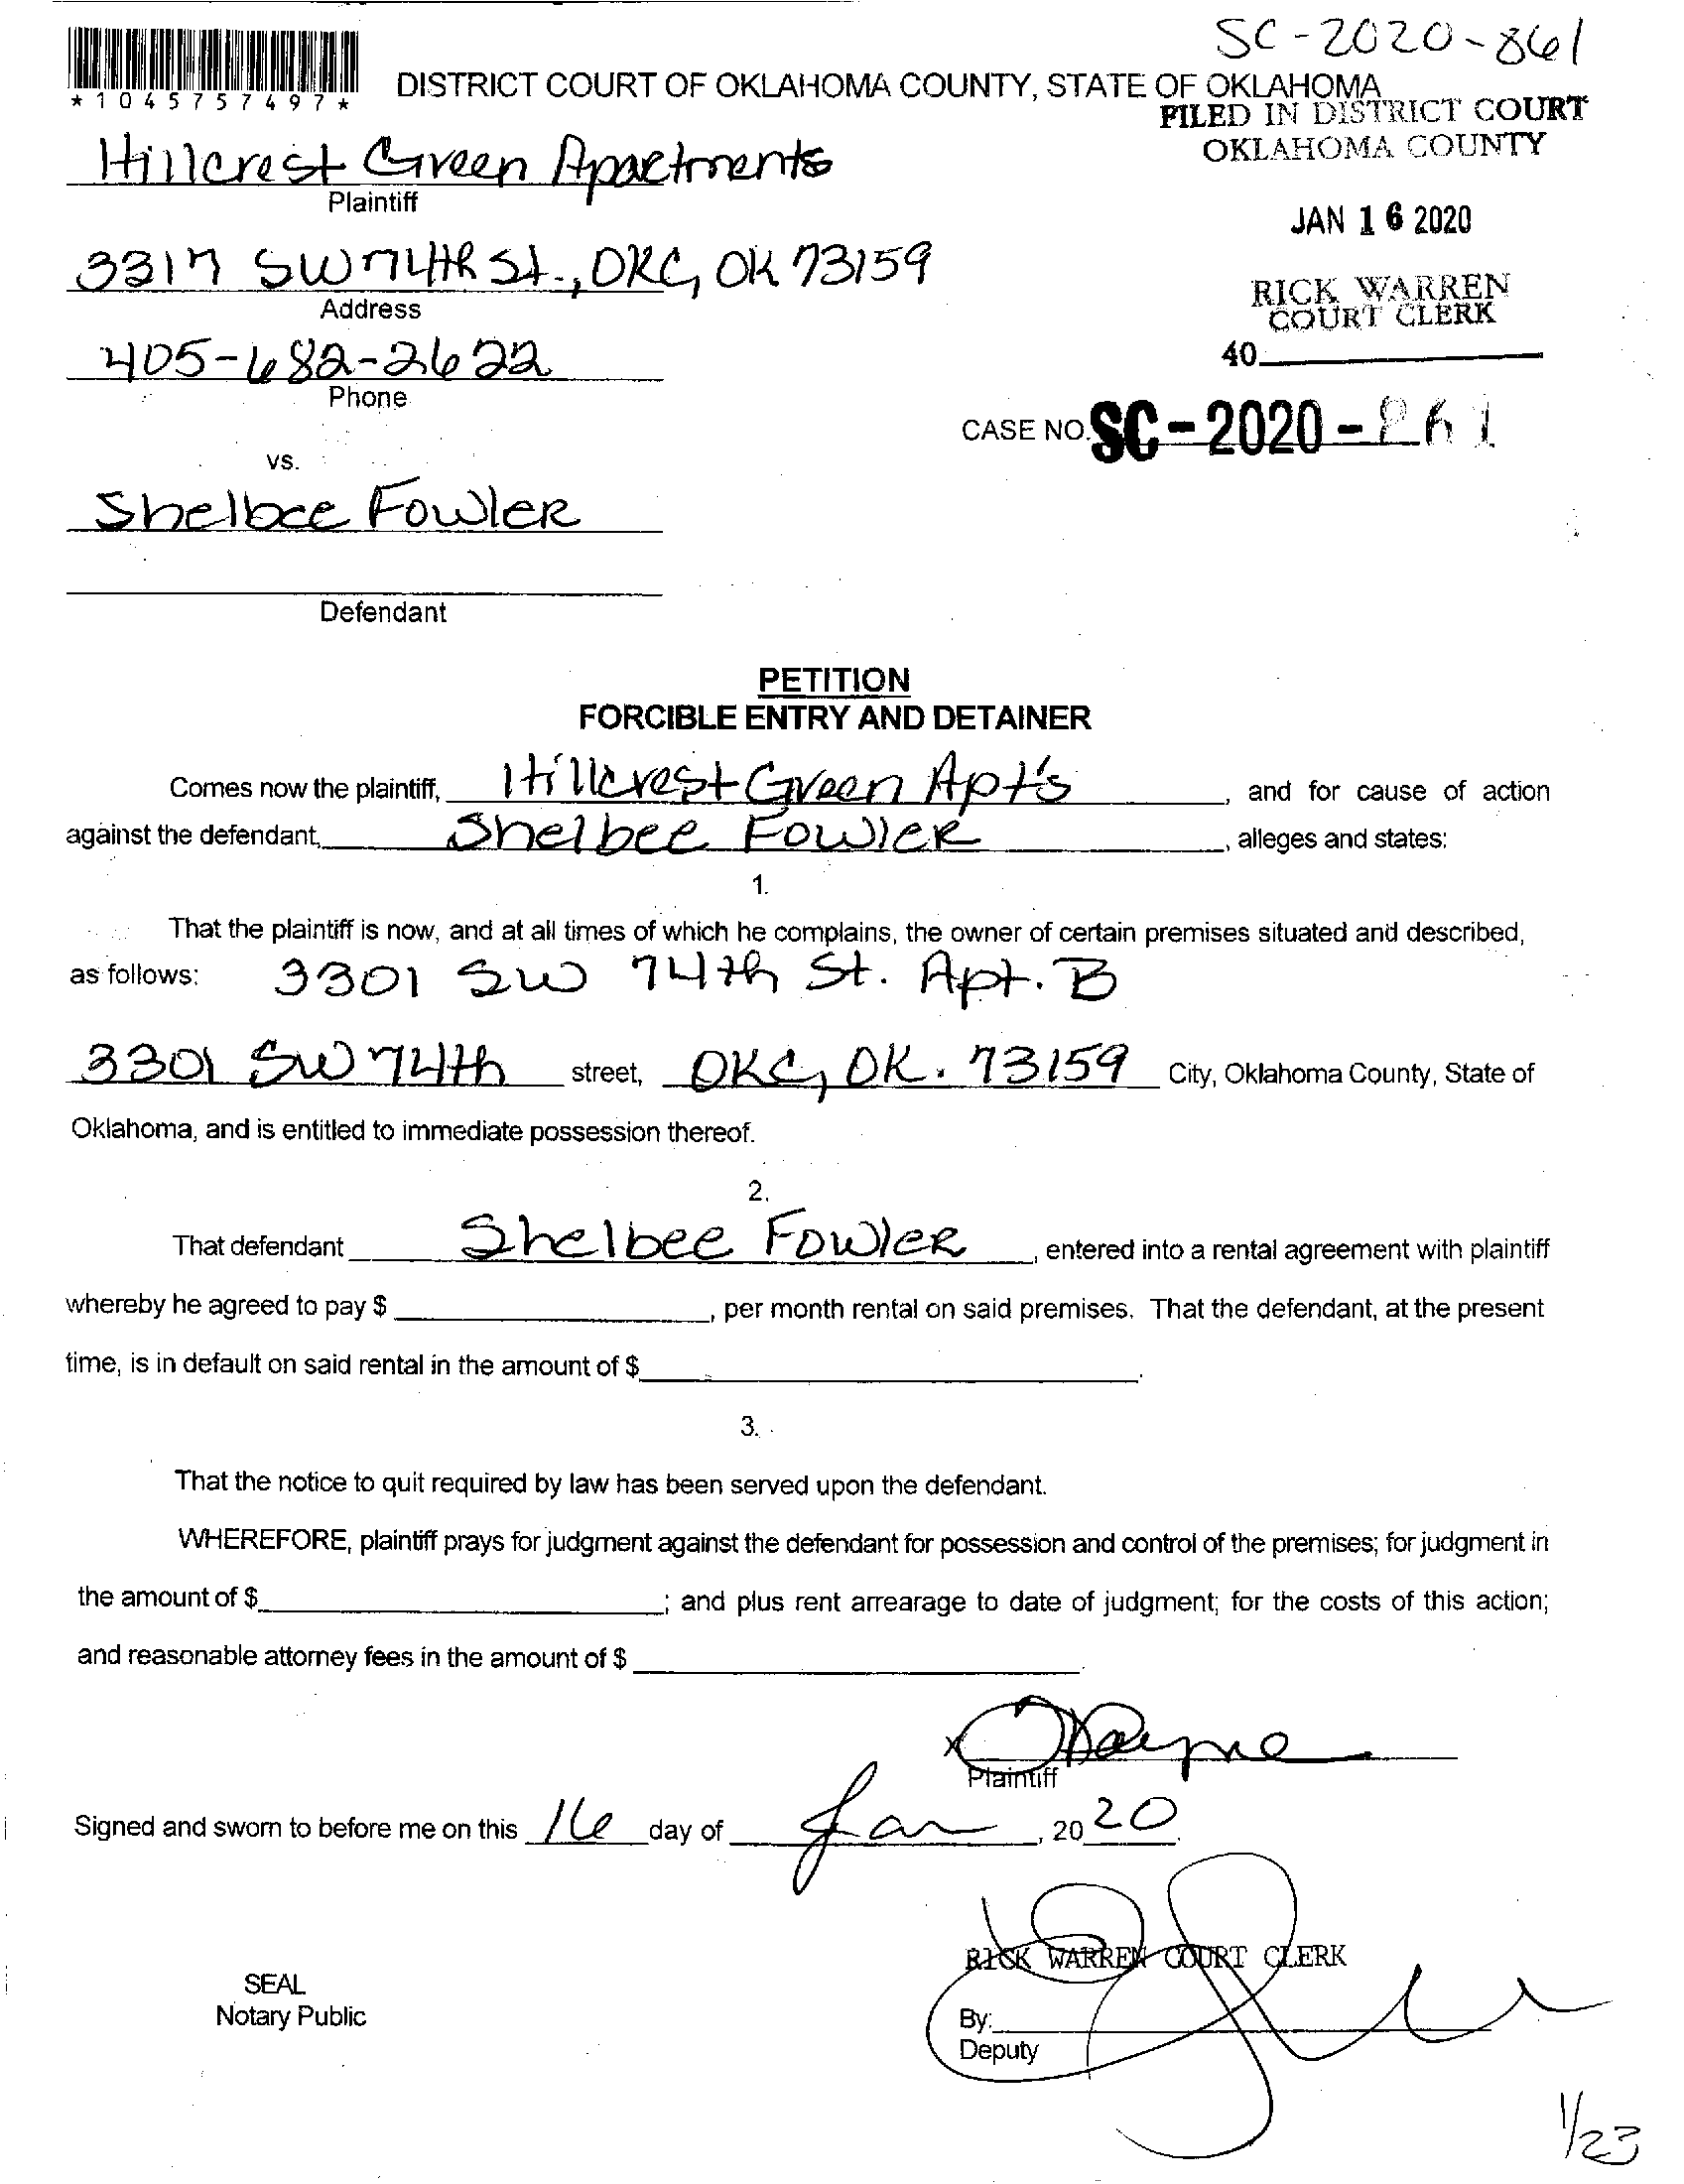 SC-2020-861
*1045757497*
DISTRICT COURT OF OKLAHOMA COUNTY, STATE OF OKLAHOMA
FILED IN DISTRICT COURT
OKLAHOMA COUNTY
Hillcrest Green Apartments
Plaintiff
JAN 16 2020
3317 SW 74th St., OKC, OK 73159
Address
RICK WARREN
COURT CLERK
405-682-2622
40
Phone
CASE NO. SC-2020-861
vs.
Shelbee Fowler
Defendant
PETITION
FORCIBLE ENTRY AND DETAINER
Comes now the plaintiff, Hillcrest Green Apt's, and for cause of action
against the defendant, Shelbee Fowler, alleges and states:
1.
That the plaintiff is now, and at all times of which he complains, the owner of certain premises situated and described,
as follows: 3301 SW 74th St. Apt. B
3301 SW 74th street, OKC, OK. 73159 City, Oklahoma County, State of
Oklahoma, and is entitled to immediate possession thereof.
2.
That defendant Shelbee Fowler, entered into a rental agreement with plaintiff
whereby he agreed to pay $, per month rental on said premises. That the defendant, at the present
time, is in default on said rental in the amount of $.
3.
That the notice to quit required by law has been served upon the defendant.
WHEREFORE, plaintiff prays for judgment against the defendant for possession and control of the premises; for judgment in
the amount of $; and plus rent arrearage to date of judgment; for the costs of this action;
and reasonable attorney fees in the amount of $.
x
Plaintiff
Signed and sworn to before me on this 16 day of Jan, 2020.
RICK WARREN COURT CLERK
SEAL
Notary Public
By:
Deputy
1/23